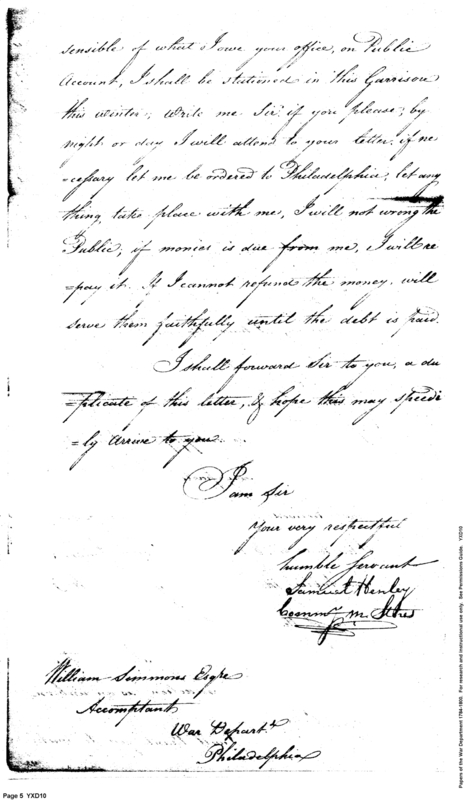 sensible of what I owe your office, on Public
Account, I shall be stationed in this Garrison
this winter; write me Sir, if you please; by
night or day I will attend to your letter; if ne
=cessary let me be ordered to Philadelphia; let any
thing take place with me, I will not wrong the
Public; if monies is due from me, I will re
=pay it. If I cannot refund the money, will
serve them faithfully until the debt is paid.
I shall forward Sir to you, a du
=plicate of this letter, & hope this may speedi
=ly arrive to you.
I am Sir
Your very respectful
humble Servant
Samuel Henley
Comm^y. M. Stores
William Simmons Esqre
Accomptant
War Depart^t
Philadelphia
Page 5 YXD10
Papers of the War Department 1784-1800. For research and instructional use only. See Permissions Guide. YXD10